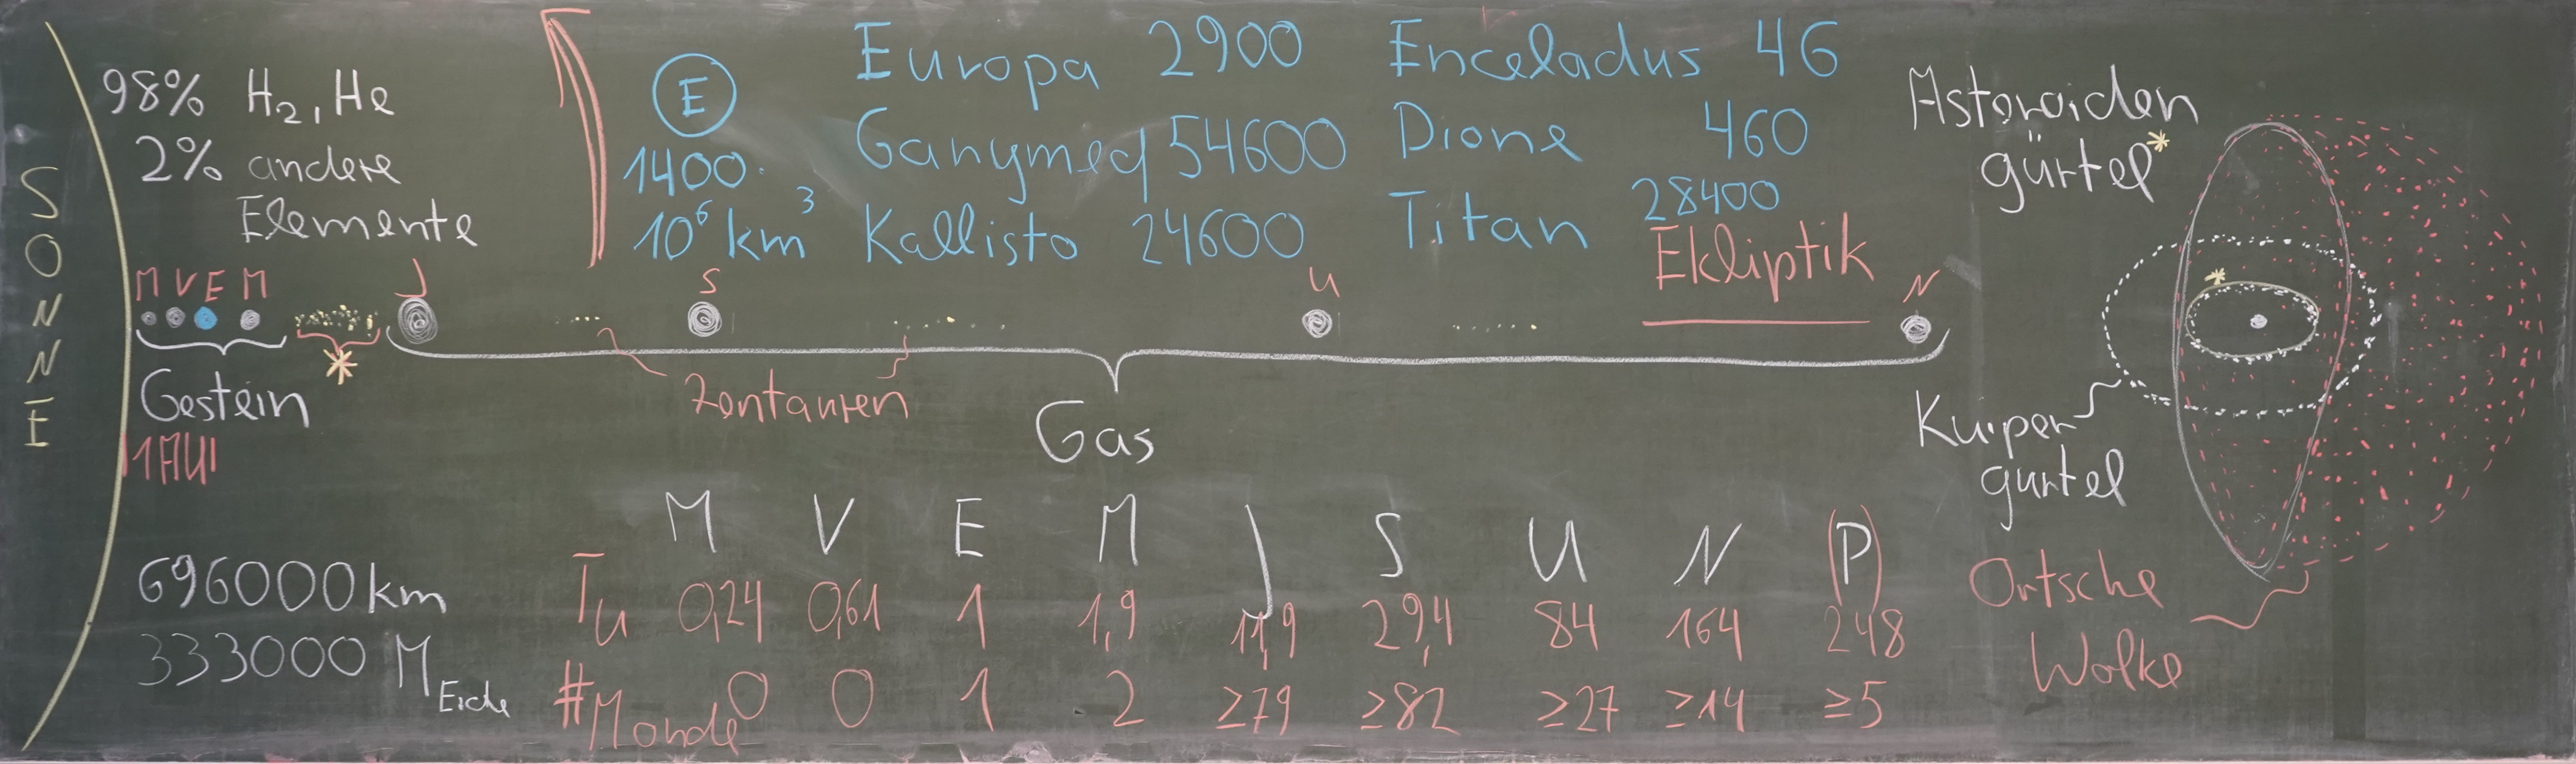 SONNE
98% H₂, He
2% andere
Elemente
E
1400·
10⁶ km³
Europa 2900
Ganymed 54600
Kallisto 24600
Enceladus 46
Dione 460
Titan 28400
Ekliptik
M V E M J S U N
Gestein
*
1AU
Zentauren
Gas
Asteroiden
gürtel*
*
Kuiper
gürtel
Ortsche
Wolke
696000 km
333000 M Erde
M V E M J S U N (P)
Tu 0,24 0,61 1 1,9 11,9 29,4 84 164 248
#Monde 0 0 1 2 ≥79 ≥82 ≥27 ≥14 ≥5